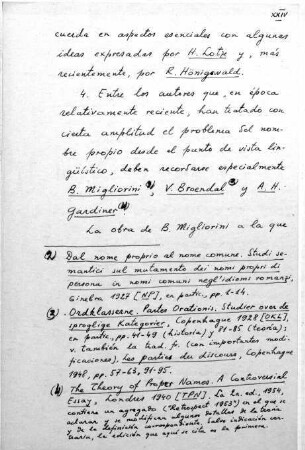 XXIV
cuerda en aspectos esenciales con algunas
ideas expresadas por H. Lotze y, más
recientemente, por R. Hönigswald.
4. Entre los autores que, en época
relativamente reciente, han tratado con
cierta amplitud el problema del nom-
bre propio desde el punto de vista lin-
güístico, deben recordarse especialmente
B. Migliorini 2), V. Broendal 3) y A. H.
Gardiner 4).
La obra de B. Migliorini a la que
2) Dal nome proprio al nome comune. Studi se-
mantici sul mutamento dei nomi propri di
persona in nomi comuni negl'idiomi romanzi,
Ginebra 1927 [NP], en partic., pp. 1-24.
3) Ordklasserne. Partes Orationis. Studier over de
sproglige Kategorier, Copenhague 1928 [OKL],
en partic., pp. 41-49 (historia), 81-85 (teoría);
v. también la trad. fr. (con importantes modi-
ficaciones), Les parties du discours, Copenhague
1948, pp. 57-63, 91-95.
4) The Theory of Proper Names. A Controversial
Essay, Londres 1940 [TPN]. La 2a. ed., 1954,
contiene un agregado ("Retrospect 1953") en el que se
aclaran y se modifican algunos detalles de la teoría
y de la definición correspondiente. Salvo indicación con-
traria, la edición que aquí se cita es la primera.